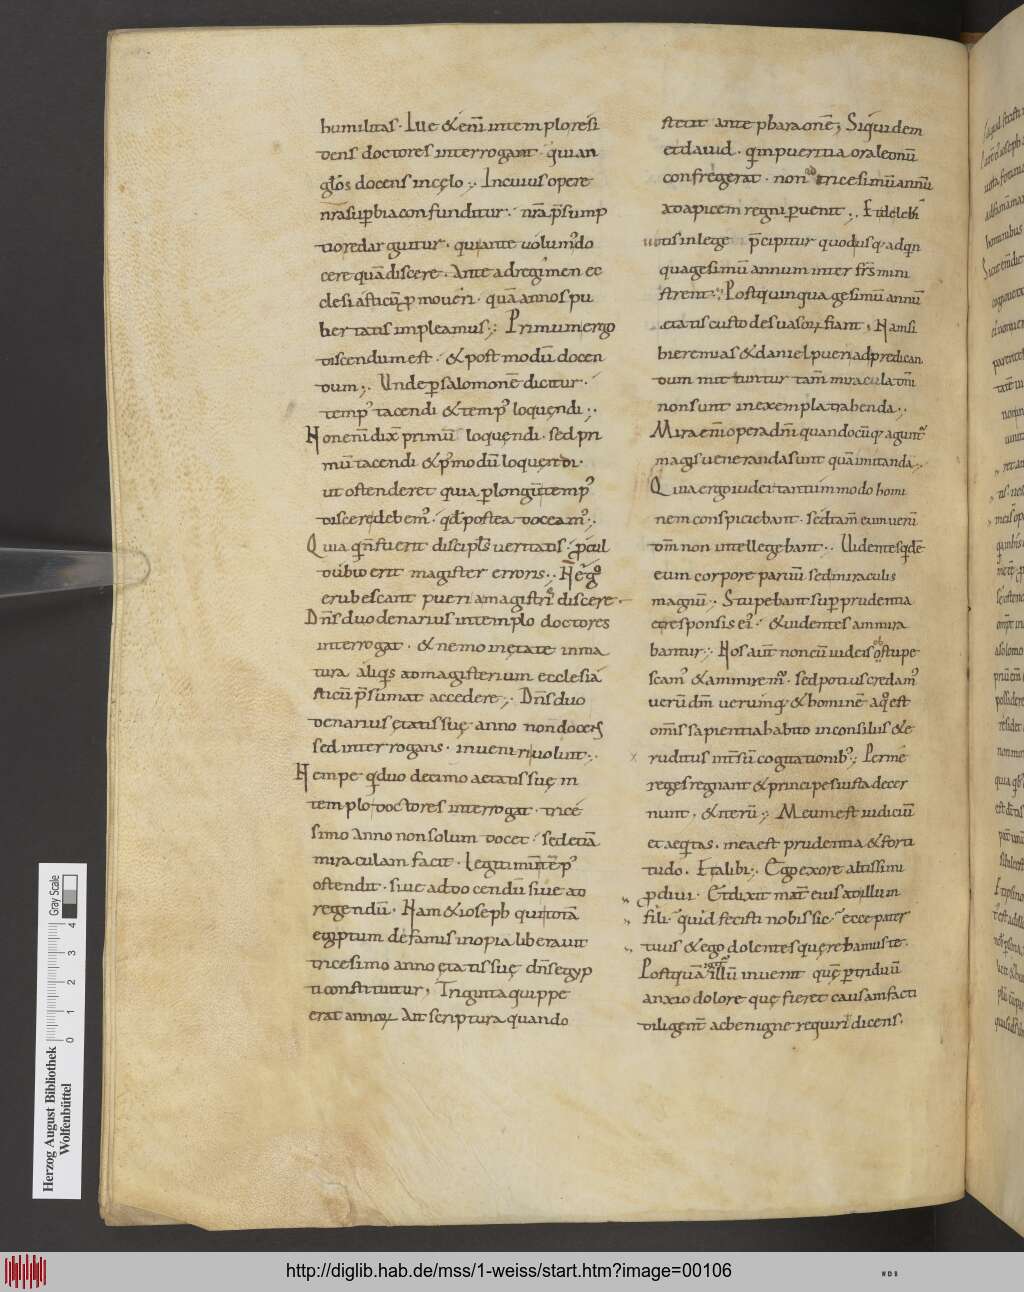 humilitas. Ille & eni̅ in templo resi
dens doctores interrogant. qui an
gl̅os docens in cęlo;. In cuius opere
nr̅a sup̱bia confunditur. nr̅a p̅sump
tio redarguitur. qui ante uolum̓ do
cere qua̅ discere. Ante ad regimen ec
clesiasticu̅ p̱moueri. qua̅ annos pu
bertatis impleamus;. Primum ergo
discendum est. & post modu̅ docen
dum;. Unde p̱ salomone̅ dicitur.
temp̓ tacendi & temp̓ loquendi;.
Non eni̅ dix̅ primu̅ loquendi. sed pri
mu̅ tacendi & p̓modu̅ loquendi.
ut ostenderet quia p̱ longu̅ temp̓
discere debem̓. qd̅ postea doceam̓;.
Quia qui n̅ fuerit discipl̅s ueritatis. p̱cul
dubio erit magister erroris;. N̅ ergo
erubescant pueri a magistris discere.
Dn̅s duodenarius in templo doctores
interrogat. & nemo in ętate inma
tura aliqis ad magisterium ecclesia
sticu̅ p̅sumat accedere;. Dn̅s duo
denarius ętatis suę anno non docens
sed interrogans. inueniri uoluit;.
Nempe q̓ duodecimo aetatis suę in
templo doctores interrogat. trice
simo anno non solum docet. sed etia̅
miraculam facit. legitimu̅ te̅p̓
ostendit. siue ad docendu̅ siue ad
regendu̅. Nam & ioseph qui tota̅
egiptum de famis inopia liberauit
tricesimo anno ętatis suę dn̅s egyp
ti constituitur, Triginta quippe
erat annoꝝ. Ait scriptura quando
stetit ante pharaone̅; Siquidem
et dauid. qui in pueritia ora leonu̅
confregerat. non ad tricesimu̅ annu̅
ad apicem regni p̱uenit;. Et de lebi
tis in lege p̅cipitur quod usq; ad qin
quagesimu̅ annum inter fr̅s mini
strent;. Post quinquagesimu̅ annu̅
ętatis custodes uasoꝝ fiant, Nam si
hieremias & daniel pueri ad predican
dum mittuntur tam̅ miracula dn̅i
non sunt in exempla trahenda;.
Mira eni̅ opera dn̅i quandocu̅q; agunt᷑
magis ueneranda sunt qua̅ imitanda;.
Quia ergo iudei tantum modo homi
nem conspiciebant. sed tam̅ eum ueru̅
dm̅ non intellegebant;. Uidentes q̓dem
eum corpore paruu̅. sed miraculis
magnu̅;. Stupebant sup̱ prudentia
et responsis ei̓. & uidentes ammira
bantur;. Nos aut̅ non cu̅ iudeis obstupe
scam̓ & ammirem̓. sed potius credam̓
ueru̅ dm̅ ueru̅mq; & homine̅ a quo est
om̅is sapientia habito in consilus & e
ruditus int̅ su̅ cogitationib;;. Per me
reges regnant & principes iusta decer
nunt. & iteru̅;. Meum est iudiciu̅
et aeqitas. mea est prudentia & forti
tudo. Et alibi;. Ego ex ore altissimi
p̱diui. Et dixit mat̅ eius ad illum
fili. quid fecisti nobis sic. ecce pater
tuus & ego dolentes querebamus te.
Postqua̅ illu̅ inuenit quę p̱ triduu̅
anxio dolore quę fieret causam facti
diligent̅ ac benigne requiri dicens.
Herzog August Bibliothek
Wolfenbüttel
Gray Scale
0 1 2 3 4
http://diglib.hab.de/mss/1-weiss/start.htm?image=00106